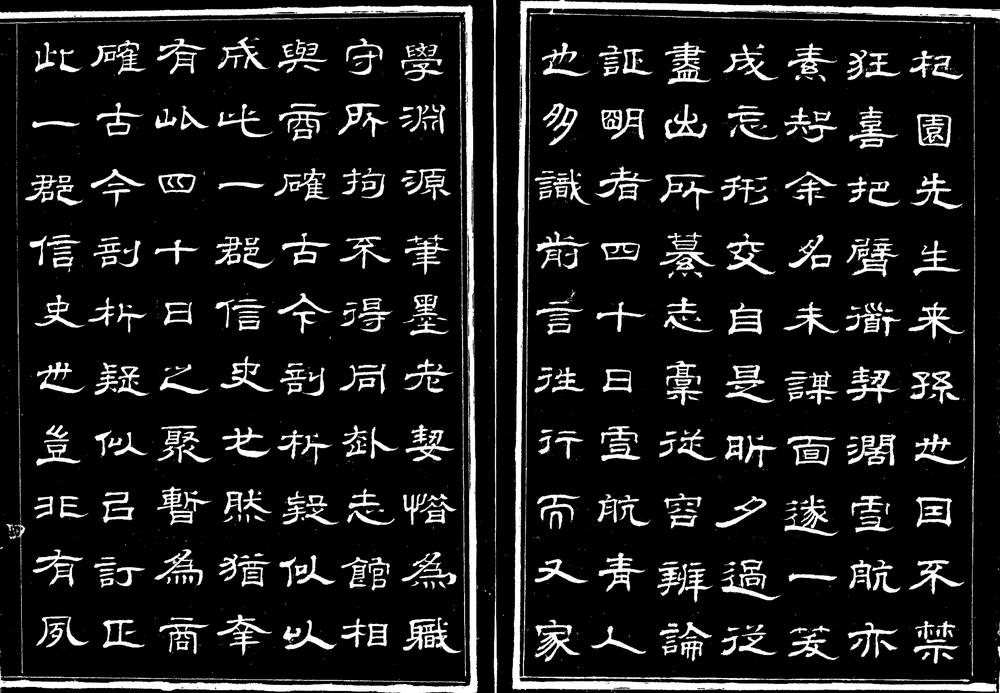 杞園先生来孫也囙不禁
狂喜把臂衜契濶雪航亦
素余名未謀面遂一笑
成忘形交自是昕夕過從
盡出所纂志稾從容辨論
証明者四十日雪航青人
也多識前言往行而又家
學淵源筆墨老契惜為職
守所拘不得同赴志館相
與商確古今剖析疑似以
成此一郡信史也然猶幸
有此四十日之聚暫為商
確古今剖析疑似已訂正
此一郡信史也豈非有夙